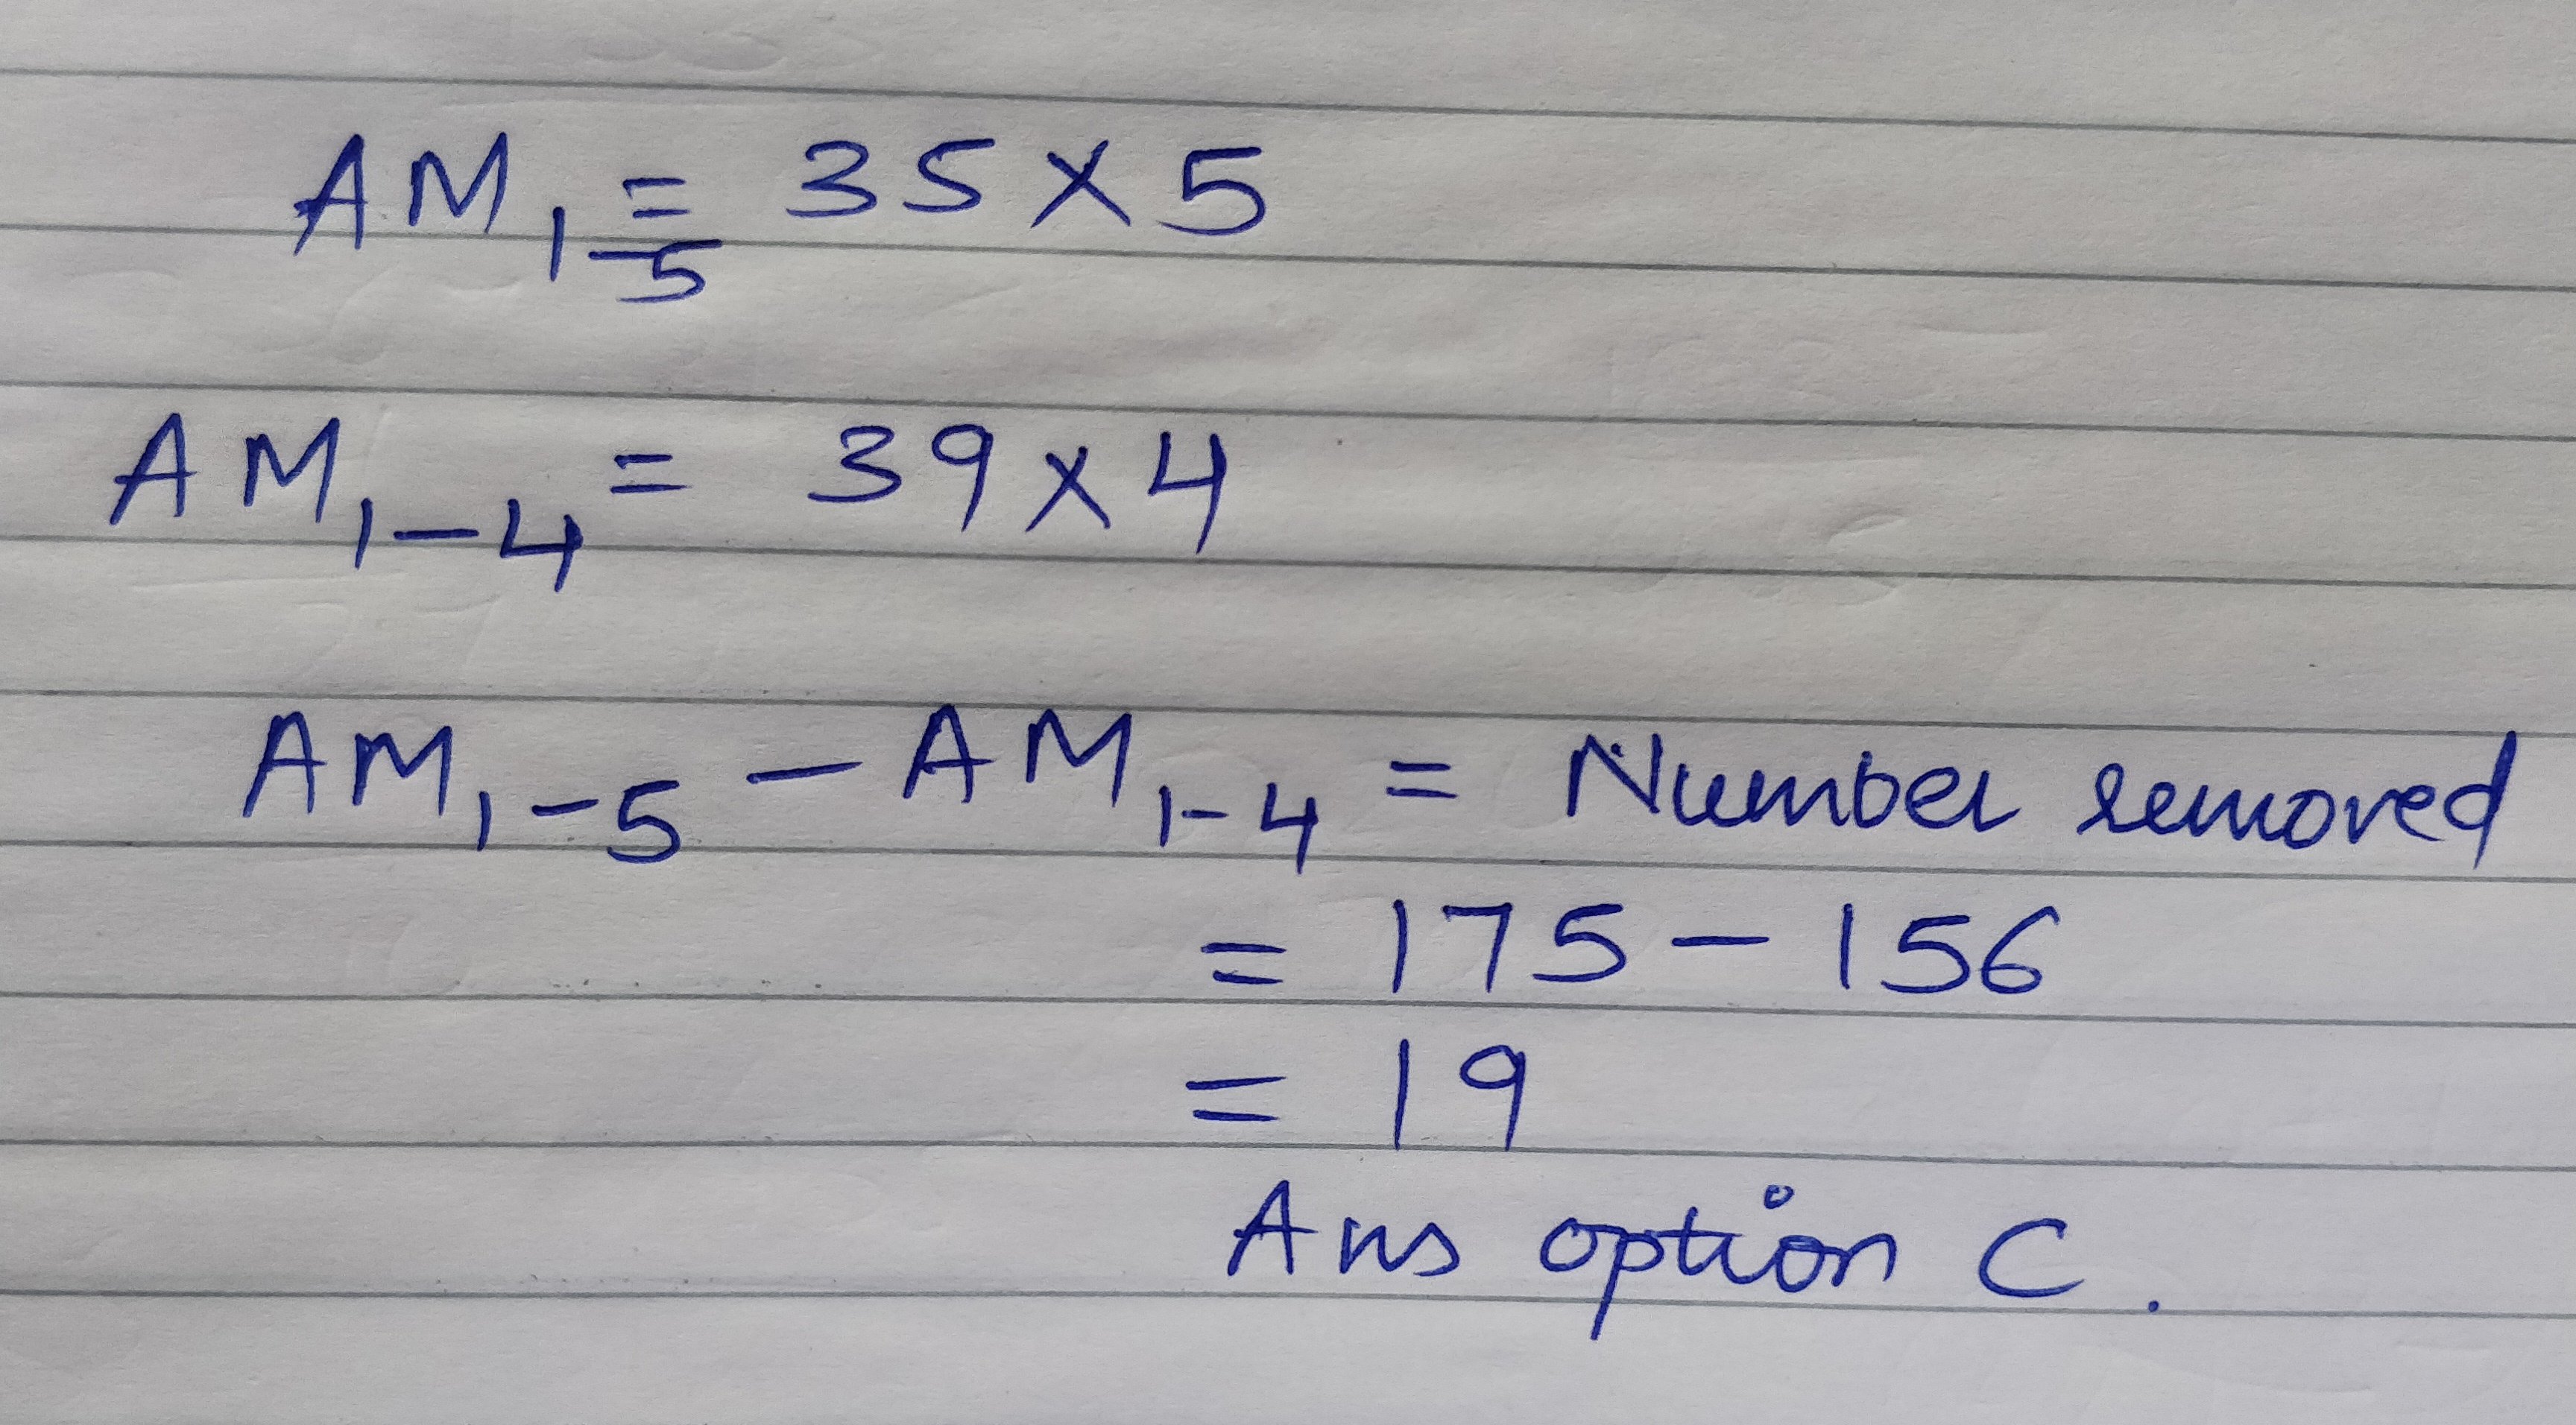 AM₁₋₅ = 35 × 5
AM₁₋₄ = 39 × 4
AM₁₋₅ − AM₁₋₄ = Number removed
= 175 − 156
= 19
Ans option C.